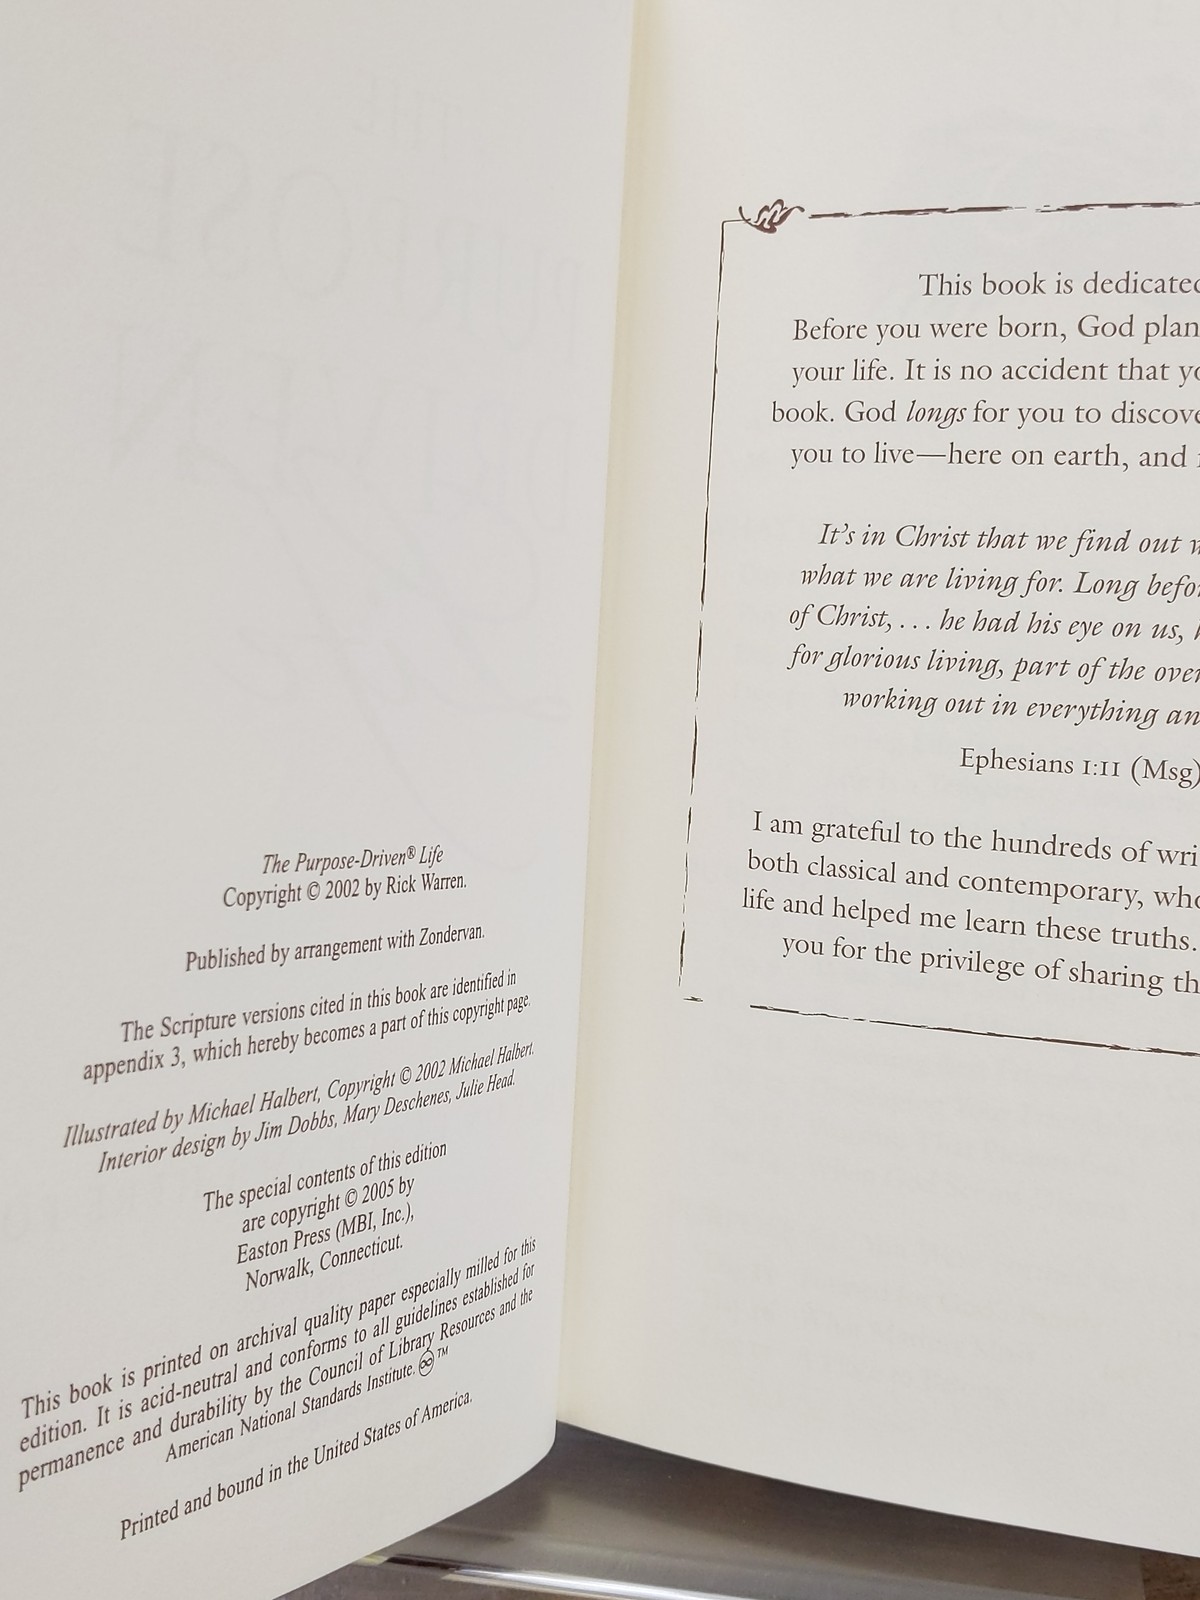 The Purpose-Driven® Life
Copyright © 2002 by Rick Warren.
Published by arrangement with Zondervan.
The Scripture versions cited in this book are identified in
appendix 3, which hereby becomes a part of this copyright page.
Illustrated by Michael Halbert, Copyright © 2002 Michael Halbert.
Interior design by Jim Dobbs, Mary Deschenes, Julie Head.
The special contents of this edition
are copyright © 2005 by
Easton Press (MBI, Inc.),
Norwalk, Connecticut.
This book is printed on archival quality paper especially milled for this
edition. It is acid-neutral and conforms to all guidelines established for
permanence and durability by the Council of Library Resources and the
American National Standards Institute. ♾™
Printed and bound in the United States of America.
This book is dedicated
Before you were born, God plan
your life. It is no accident that yo
book. God longs for you to discove
you to live—here on earth, and
It's in Christ that we find out w
what we are living for. Long befor
of Christ, . . . he had his eye on us, h
for glorious living, part of the over
working out in everything an
Ephesians 1:11 (Msg)
I am grateful to the hundreds of wri
both classical and contemporary, who
life and helped me learn these truths.
you for the privilege of sharing th